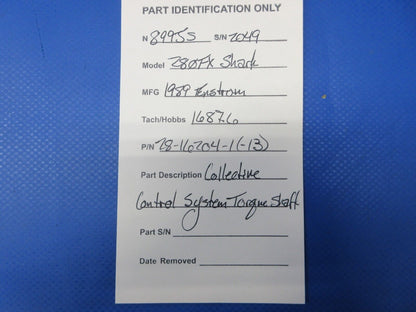 PART IDENTIFICATION ONLY
N 8995S S/N 2049
Model 280FX Shark
MFG 1989 Enstrom
Tach/Hobbs 1687.6
P/N 28-16204-1(-13)
Part Description Collective
Control System Torque Shaft
Part S/N
Date Removed